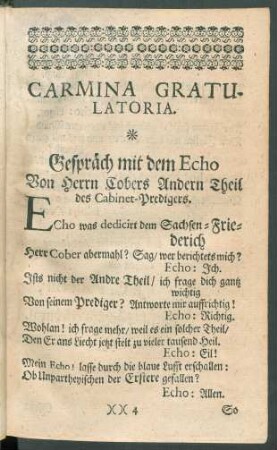 CARMINA GRATU-
LATORIA.
*
Gespräch mit dem Echo
Von Herrn Cobers Andern Theil
des Cabinet-Predigers.
ECho was dedicirt dem Sachsen-Frie-
derich
Herr Cober abermahl? Sag/ wer berichtets mich?
Echo: Ich.
Ists nicht der Andre Theil/ ich frage dich gantz
wichtig
Von seinem Prediger? Antworte mir auffrichtig!
Echo: Richtig.
Wohlan! ich frage mehr/ weil es ein solcher Theil/
Den Er ans Liecht jetzt stelt zu vieler tausend Heil.
Echo: Eil!
Mein Echo! lasse durch die blaue Lufft erschallen:
Ob Unpartheyischen der Erstere gefallen?
Echo: Allen.
XX 4 So